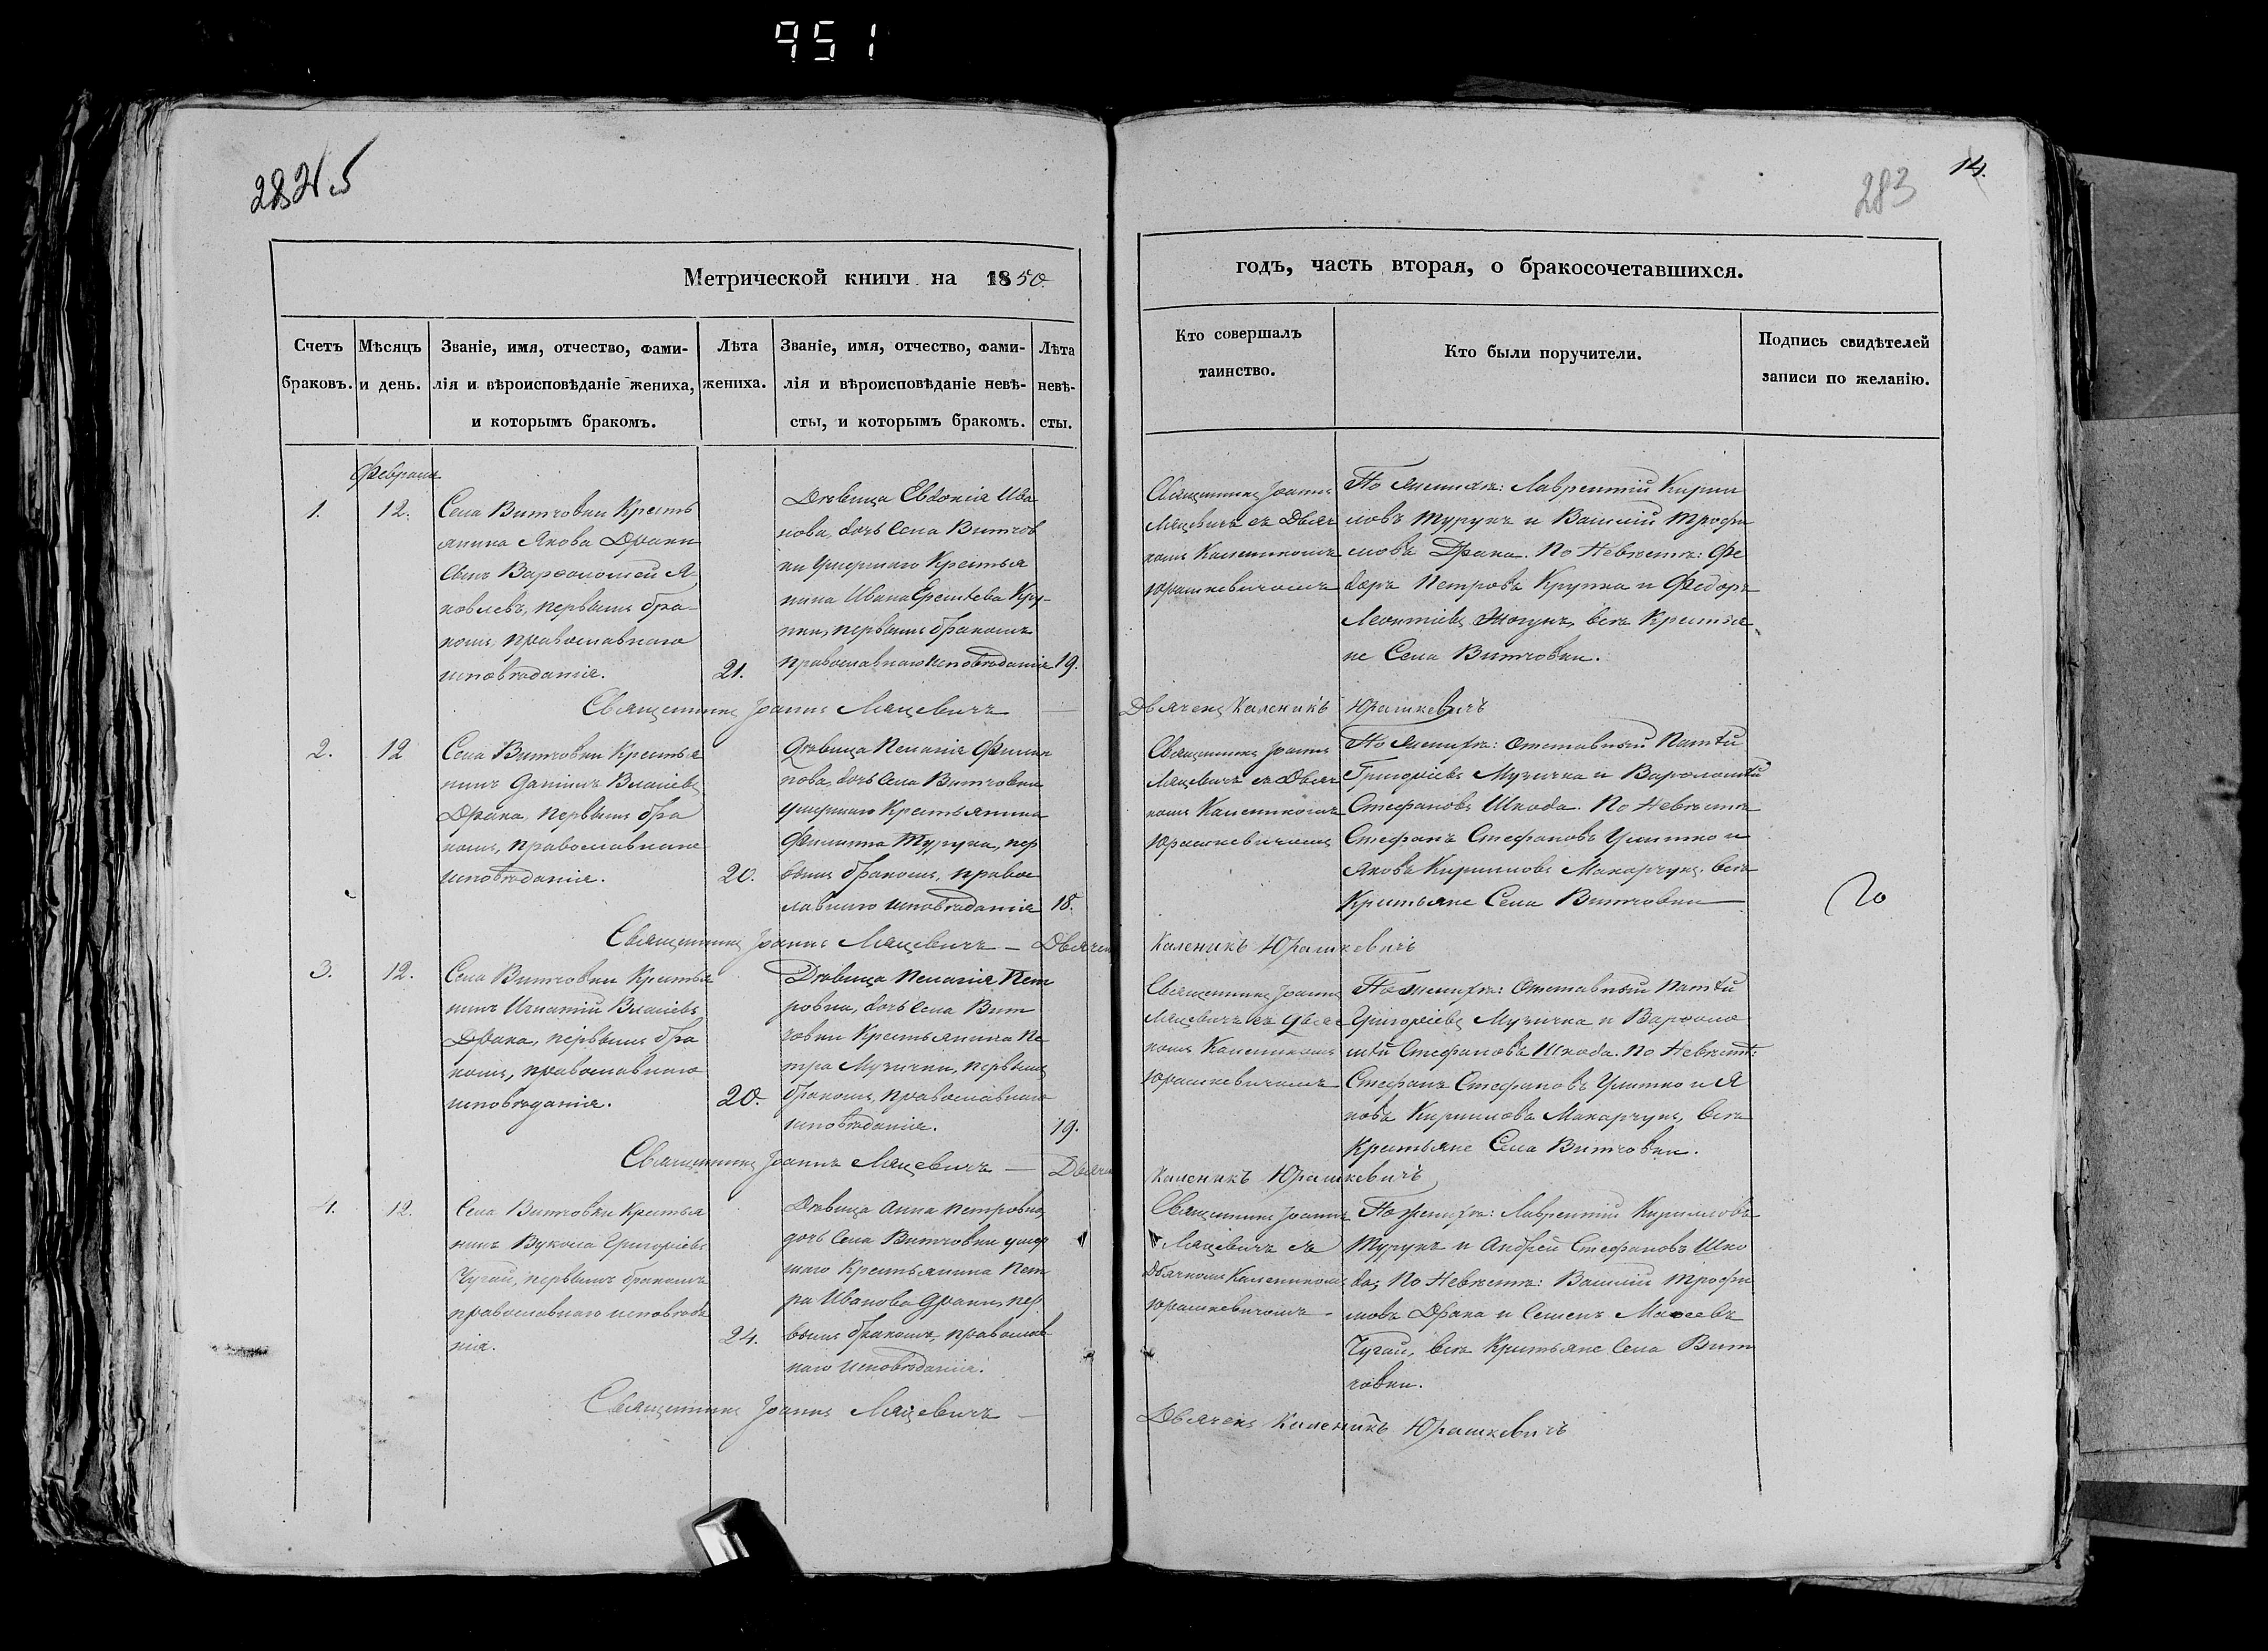 951
283
14.
Метрической книги на 1850.
годъ, часть вторая, о бракосочетавшихся.
Счетъ браковъ.
Мѣсяцъ и день.
Званіе, имя, отчество, фами-
лія и вѣроисповѣданіе жениха,
и которымъ бракомъ.
Лѣта
жениха.
Званіе, имя, отчество, фами-
лія и вѣроисповѣданіе невѣ-
сты, и которымъ бракомъ.
Лѣта
невѣ-
сты.
Кто совершалъ
таинство.
Кто были поручители.
Подпись свидѣтелей
записи по желанію.
Февраля
1.
12.
Села Витковки Кресть
янина Якова Драки
Сынъ Варѳоломей Я-
ковлевъ, первымъ бра-
комъ, православнаго
исповѣданія.
21.
Дѣвица Евдокія Ива
нова, дочь Села Витков
ки умершаго Крестья
нина Ивана
первымъ бракомъ
православнаго исповѣданія
19.
Священникъ Іоаннъ
Мацевичъ съ Дьяч
комъ Каленикомъ
Юрашкевичемъ
По Женихѣ: Лаврентій Кирил
ловъ Турукъ и Василій Трофи
мовъ Драка. По Невѣстѣ: Фе
доръ Петровъ Крупка и Федоръ
Леонтіевъ всѣ Крестья
не Села Витковки.
Священникъ Іоаннъ Мацевичъ
Дьячекъ Каленикъ Юрашкевичъ
2.
12
Села Витковки Крестья
нинъ Даніилъ Власіевъ
Драка, первымъ бра
комъ, православнаго
исповѣданія.
20.
Дѣвица Пелагія Филип
пова, дочь Села Витковки
умершаго Крестьянина
Филиппа Турука, пер
вымъ бракомъ, право
славнаго исповѣданія
18.
Священникъ Іоаннъ
Мацевичъ съ Дьяч
комъ Каленикомъ
Юрашкевичемъ
По Женихѣ: Отставный Патѣй
Григоріевъ Музичка и Варѳоломѣй
Стефановъ Шкода. По Невѣстѣ
Стефанъ Стефановъ Улитко и
Яковъ Кириловъ Макарчукъ, всѣ
Крестьяне Села Витковки
20
Священникъ Іоаннъ Мацевичъ — Дьячекъ
Каленикъ Юрашкевичъ
3.
12.
Села Витковки Крестья
нинъ Игнатій Власіевъ
Драка, первымъ бра
комъ, православнаго
исповѣданія.
20.
Дѣвица Пелагія Пет
ровна, дочь Села Вит
ковки Крестьянина Пе
тра Музички, первымъ
бракомъ, православнаго
исповѣданія.
19.
Священникъ Іоаннъ
Мацевичъ съ Дьяч
комъ Каленикомъ
Юрашкевичемъ
По Женихѣ: Отставный Патѣй
Григоріевъ Музичка и Варѳоло
мѣй Стефановъ Шкода. По Невѣст:
Стефанъ Стефановъ Улитко и Я
ковъ Кириловъ Макарчукъ, всѣ
Крестьяне Села Витковки.
Священникъ Іоаннъ Мацевичъ — Дьячекъ
Каленикъ Юрашкевичъ
4.
12.
Села Витковки Крестья
нинъ Вукола Григоріевъ
Чугай, первымъ бракомъ
православнаго исповѣда
нія.
24.
Дѣвица Анна Петровна,
дочь Села Витковки умер
шаго Крестьянина Пет
ра Иванова Драки, пер
вымъ бракомъ, православ-
наго исповѣданія.
Священникъ Іоаннъ
Мацевичъ съ
Дьячкомъ Каленикомъ
Юрашкевичемъ
По Женихѣ: Лаврентій Кирилловъ
Турукъ и Андрей Стефановъ Шко
да; По Невѣстѣ: Василій Трофи
мовъ Драка и Семенъ Моѵсеевъ
Чугай, всѣ Крестьяне Села Вит
ковки.
Священникъ Іоаннъ Мацевичъ
Дьячекъ Каленикъ Юрашкевичъ